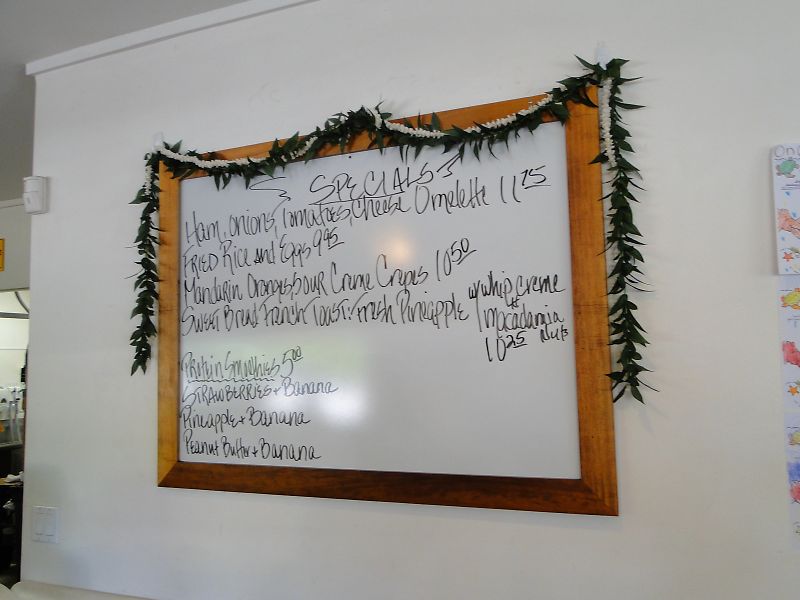 SPECIALS
Ham, onions, Tomatoes, Cheese Omelette 11 75
FRIED Rice and Eggs 9 95
Mandarin Oranges Sour Creme Crepes 10 50
Sweet Bread French Toast: Fresh Pineapple w/whip creme
+ macadamia
10 25 Nuts
Protein Smoothies 5 00
STRAWBERRIES + Banana
Pineapple + Banana
Peanut Butter + Banana